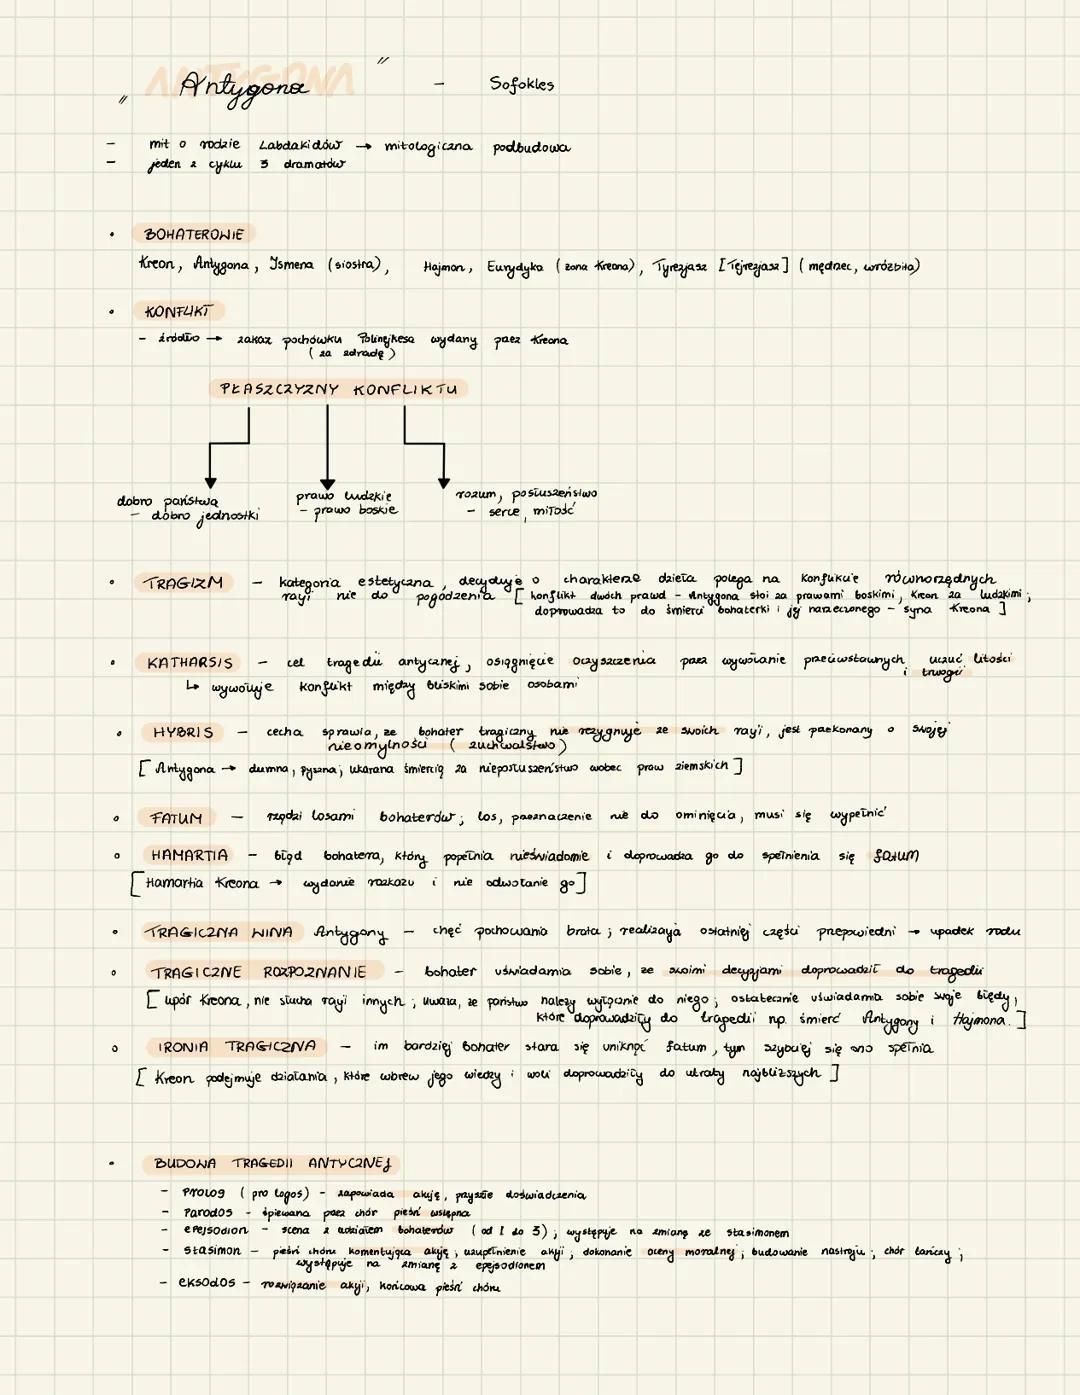 ANTYGONA
"Antygona" - Sofokles
- mit o rodzie Labdakidów → mitologiczna podbudowa
- jeden z cyklu 3 dramatów
• BOHATEROWIE
Kreon, Antygona, Ismena (siostra), Hajmon, Eurydyka (żona Kreona), Tyrezjasz [Tejrezjasz] (mędrzec, wróżbita)
• KONFLIKT
- źródło → zakaz pochówku Polinejkesa wydany przez Kreona
(za zdradę)
PŁASZCZYZNY KONFLIKTU
dobro państwa
- dobro jednostki
prawo ludzkie
- prawo boskie
rozum, posłuszeństwo
- serce, miłość
• TRAGIZM - kategoria estetyczna, decyduje o charakterze dzieła polega na konflikcie równorzędnych
racji nie do pogodzenia [konflikt dwóch prawd - Antygona stoi za prawami boskimi, Kreon za ludzkimi;
doprowadza to do śmierci bohaterki i jej narzeczonego - syna Kreona]
• KATHARSIS - cel tragedii antycznej, osiągnięcie oczyszczenia przez wywołanie przeciwstawnych uczuć litości
i trwogi
↳ wywołuje konflikt między bliskimi sobie osobami
• HYBRIS - cecha sprawia, że bohater tragiczny nie rezygnuje ze swoich racji, jest przekonany o swojej
nieomylności (zuchwalstwo)
[Antygona → dumna, pyszna; ukarana śmiercią za nieposłuszeństwo wobec praw ziemskich]
• FATUM - rządzi losami bohaterów; los, przeznaczenie nie do ominięcia, musi się wypełnić
• HAMARTIA - błąd bohatera, który popełnia nieświadomie i doprowadza go do spełnienia się fatum
[Hamartia Kreona → wydanie rozkazu i nie odwołanie go]
• TRAGICZNA WINA Antygony - chęć pochowania brata; realizacja ostatniej części przepowiedni → upadek rodu
• TRAGICZNE ROZPOZNANIE - bohater uświadamia sobie, że swoimi decyzjami doprowadził do tragedii
[upór Kreona, nie słucha racji innych; uważa, że państwo należy wyłącznie do niego; ostatecznie uświadamia sobie swoje błędy,
które doprowadziły do tragedii np. śmierć Antygony i Hajmona.]
• IRONIA TRAGICZNA - im bardziej bohater stara się uniknąć fatum, tym szybciej się ono spełnia
[Kreon podejmuje działania, które wbrew jego wiedzy i woli doprowadziły do utraty najbliższych]
• BUDOWA TRAGEDII ANTYCZNEJ
- prolog (pro logos) - zapowiada akcję, przyszłe doświadczenia
- parodos - śpiewana przez chór pieśń wstępna
- epejsodion - scena z udziałem bohaterów (od 1 do 3); występuje na zmianę ze stasimonem
- stasimon - pieśń chóru komentująca akcję; uzupełnienie akcji; dokonanie oceny moralnej; budowanie nastroju; chór tańczy;
występuje na zmianę z epejsodionem
- eksodos - rozwiązanie akcji, końcowa pieśń chóru